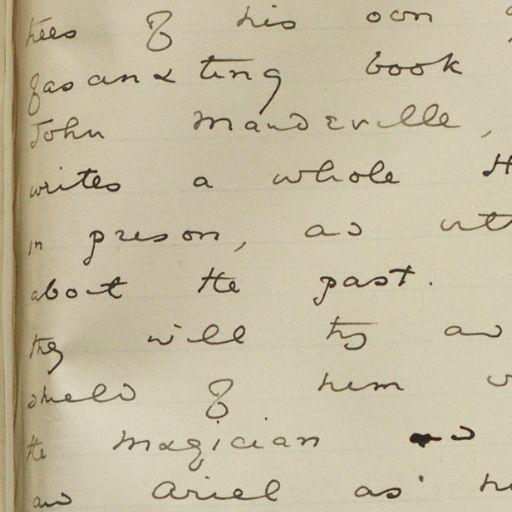 tees of his own
fascinating book
John Mandeville,
writes a whole H
in preson, as utt
about the past.
they will try and
shield of him
the magician and
and Ariel as